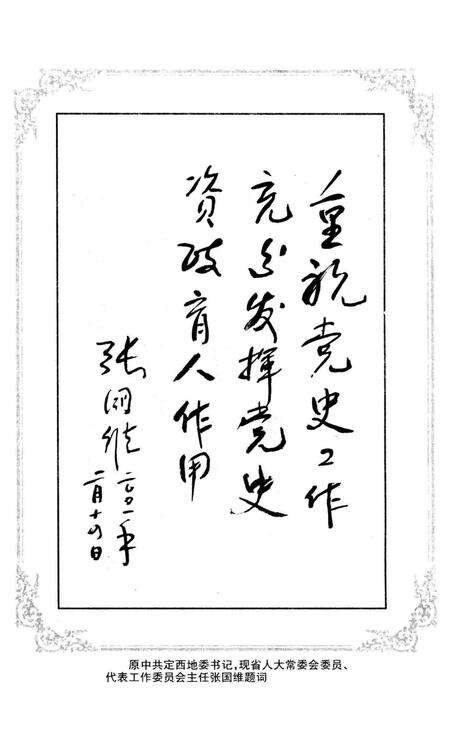 重视党史工作
充分发挥党史
资政育人作用
张国维二〇〇一年
二月十四日
原中共定西地委书记，现省人大常委会委员、
代表工作委员会主任张国维题词